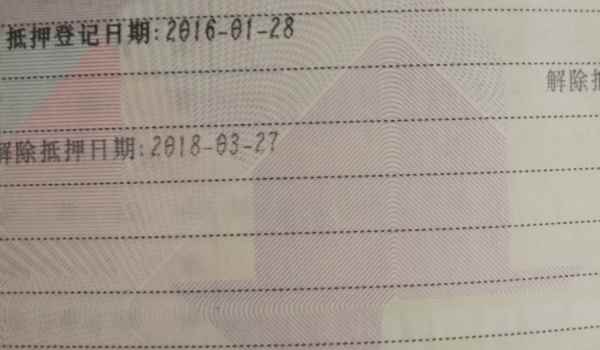 抵押登记日期:2016-01-28
解除抵
解除抵押日期:2018-03-27